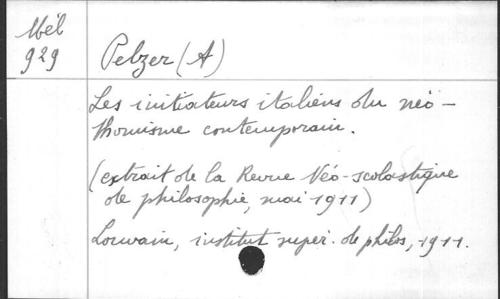 Mél
929
Pelzer (A)
Les initiateurs italiens du néo-
thomisme contemporain.
(extrait de la Revue Néo-scolastique
de philosophie, mai 1911)
Louvain, institut super. de philos, 1911.